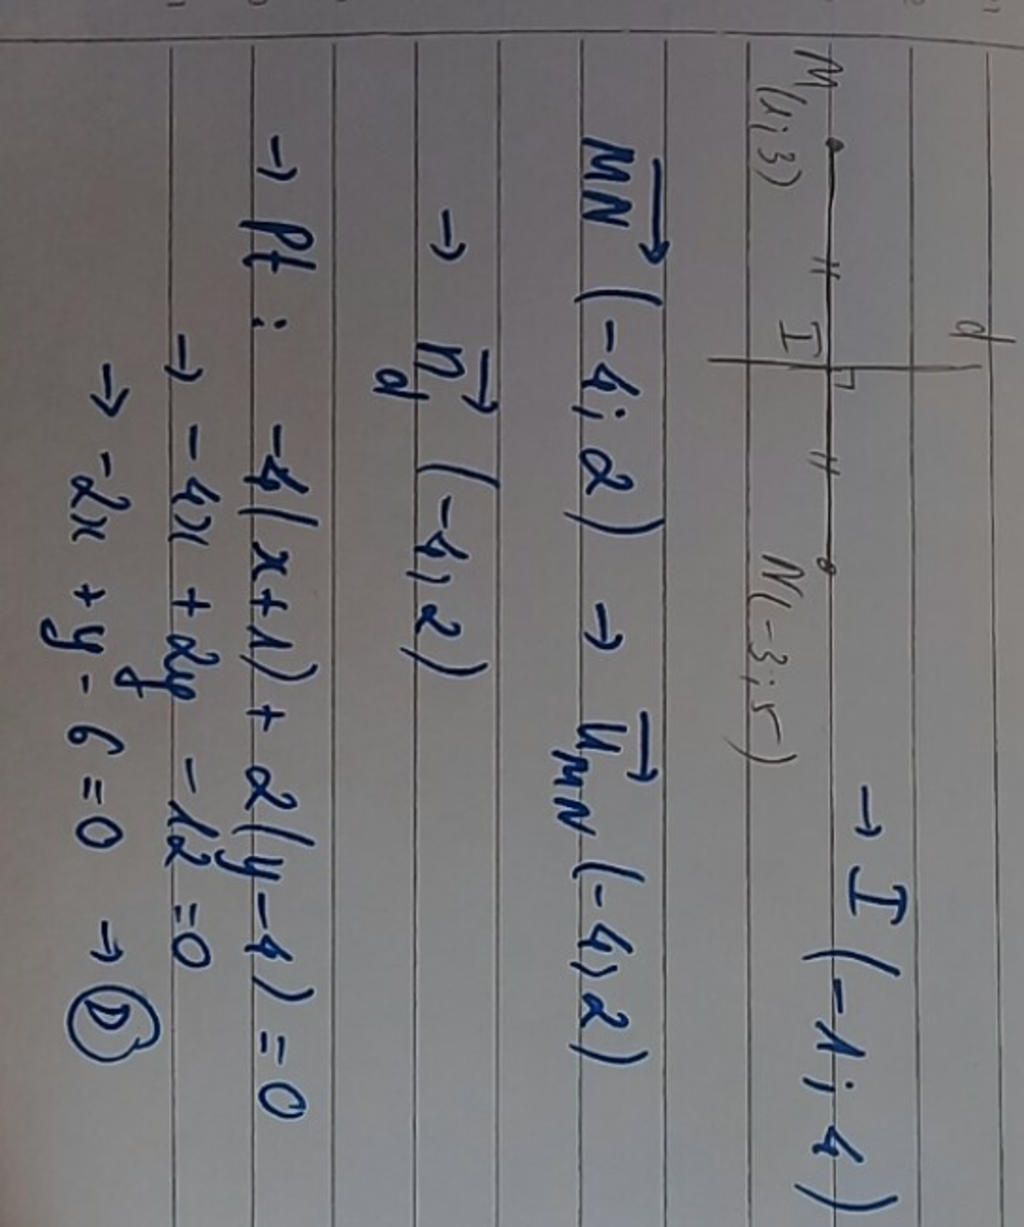 d
→ I(-1; 4)
M(1; 3) I N(-3; 5)
MN (-4; 2) → u MN (-4, 2)
→ n d (-4, 2)
→ Pt : -4(x+1) + 2(y-4) = 0
→ -4x + 2y - 12 = 0
→ -2x + y - 6 = 0 → D